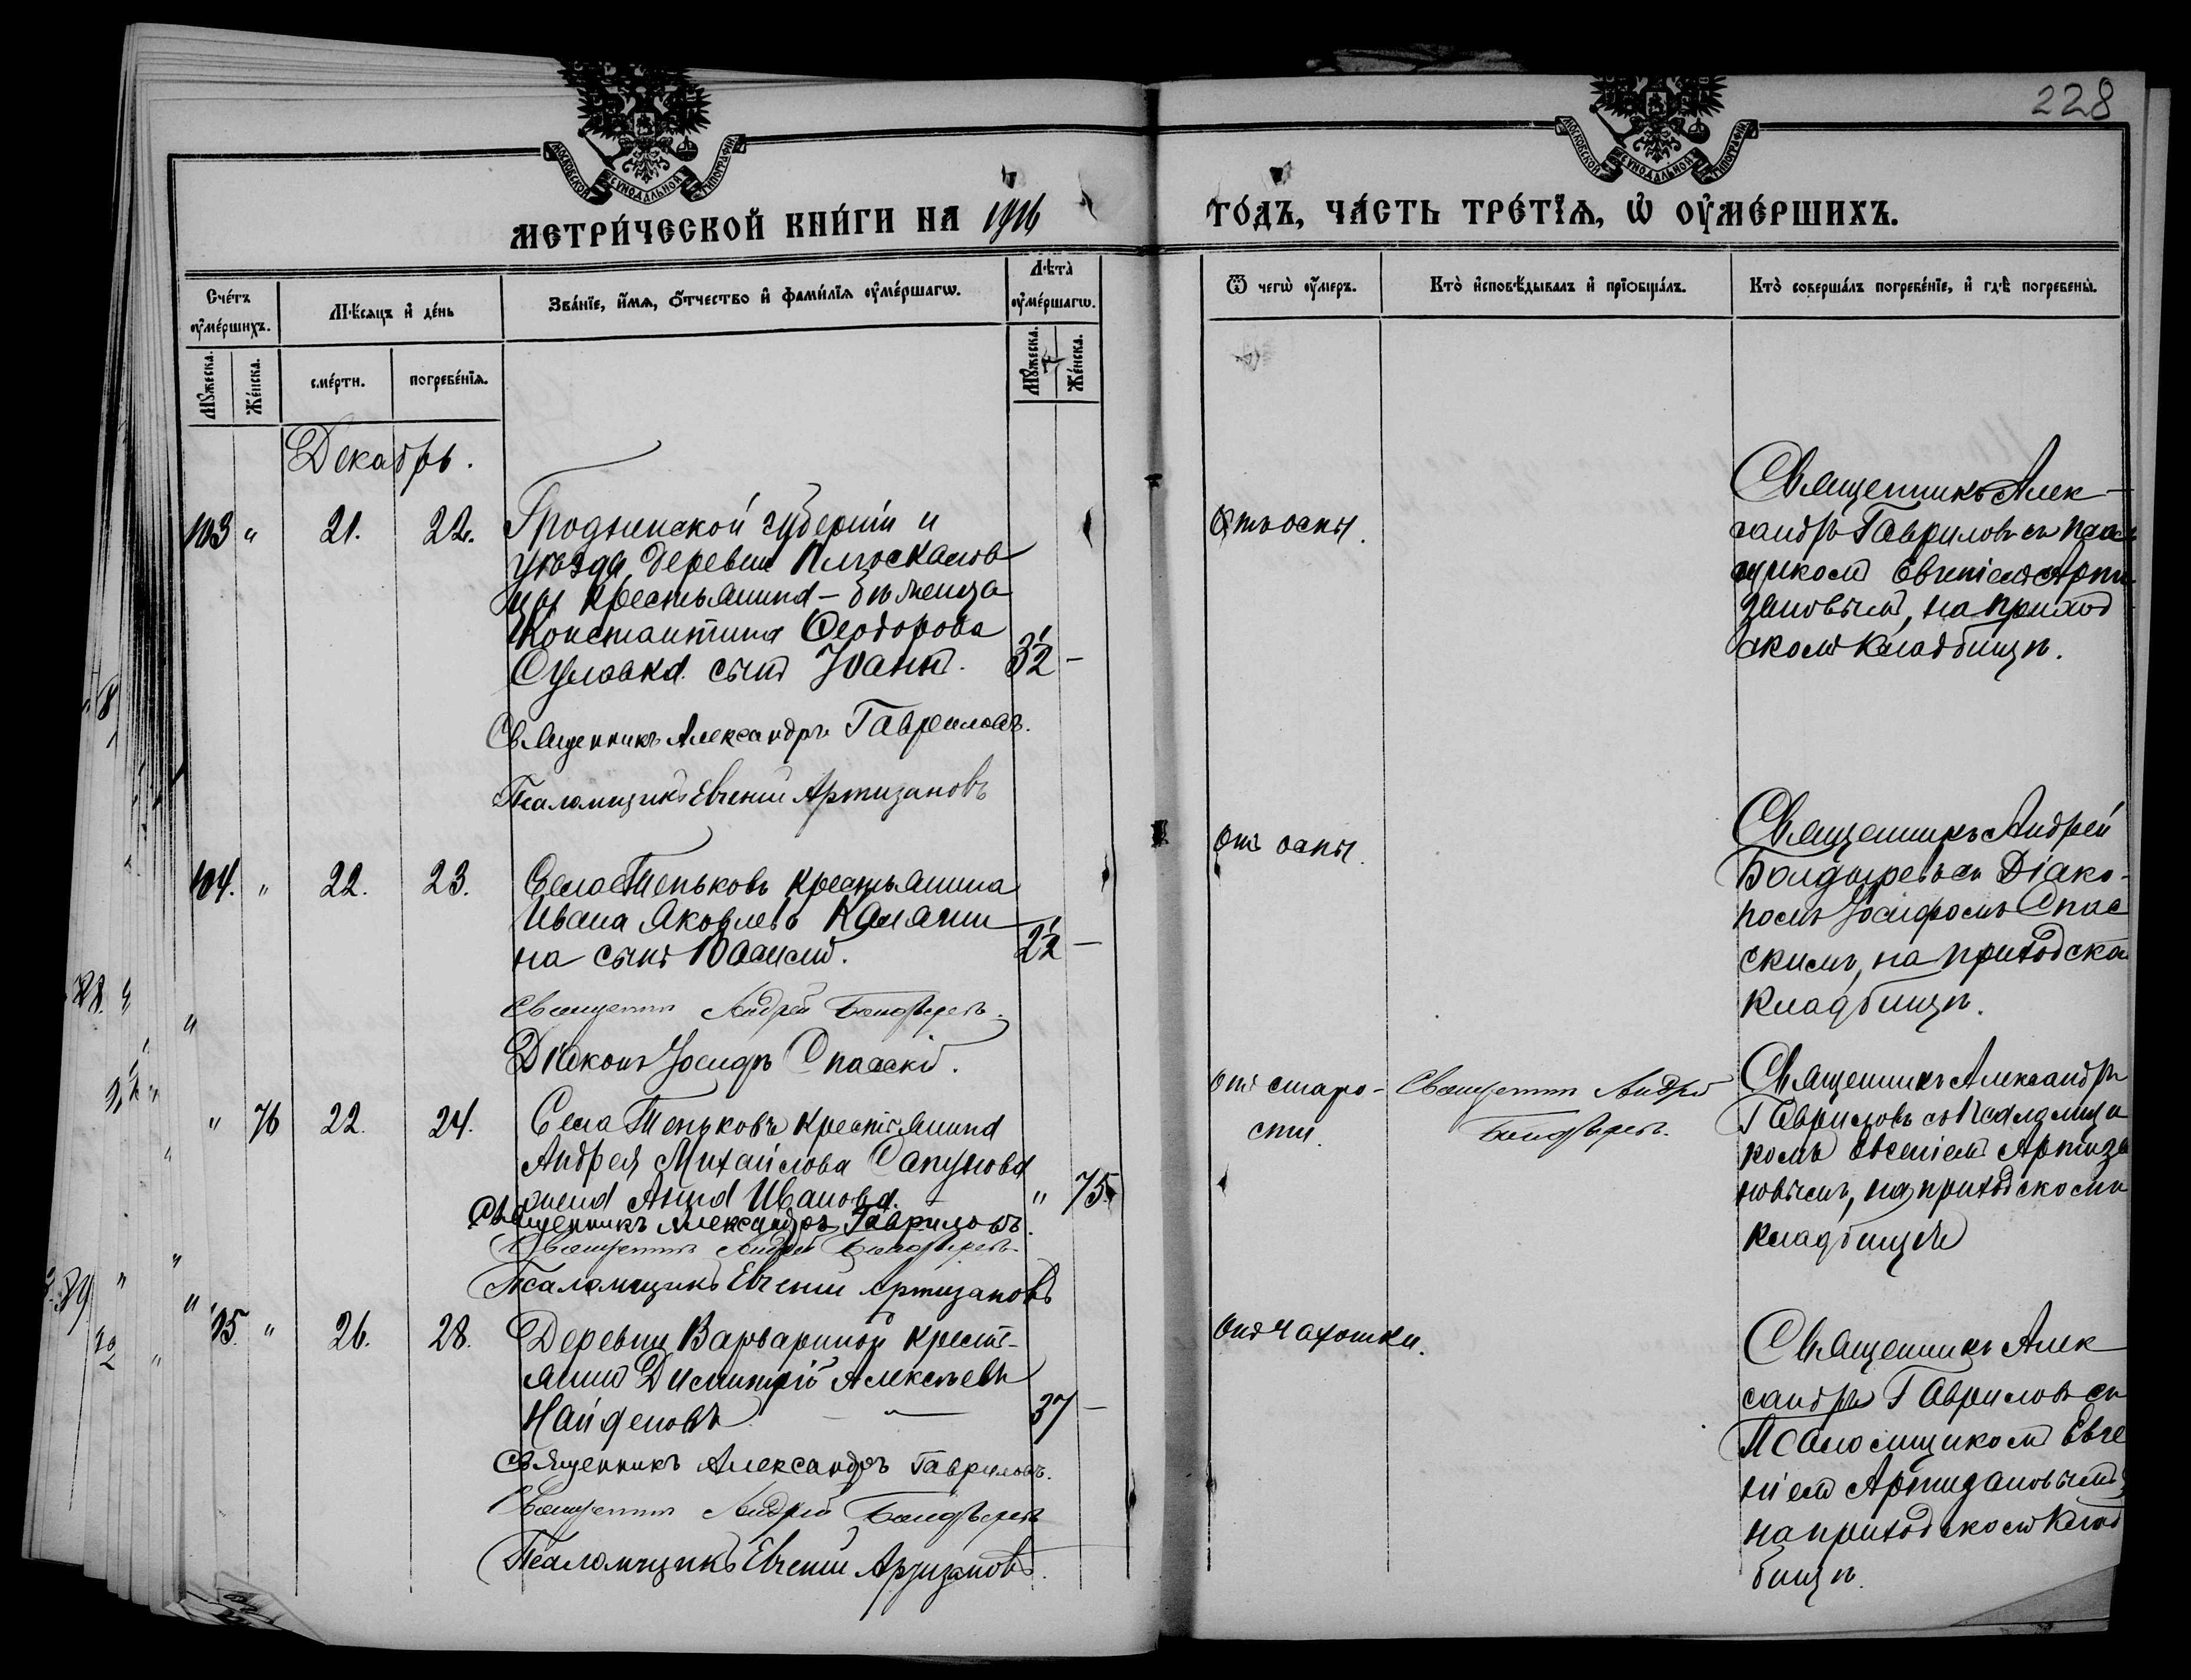 228
МОСКОВСКОЙ СѴНОДАЛЬНОЙ ТИПОГРАФІИ.
МОСКОВСКОЙ СѴНОДАЛЬНОЙ ТИПОГРАФІИ.
МЕТРИ́ЧЕСКОЙ КНИ́ГИ НА 1916
ГО́ДЪ, ЧА́СТЬ ТРЕ́ТІѦ, Ѡ҆ ОУ҆МЕ́РШИХЪ.
Сче́тъ оу҆ме́ршихъ.
Мѣ́сяцъ и҆ де́нь
Зва́нїе, и҆́мя, ѻ҆́тчество и҆ фами́лїя оу҆ме́ршагѡ.
Лѣта̀ оу҆ме́ршагѡ.
Мꙋ́жеска.
Же́нска.
сме́рти.
погребе́нїя.
Мꙋ́жеска.
Же́нска.
Ѿ чегѡ̀ оу҆́меръ.
Кто̀ и҆сповѣ́дывалъ и҆ прїѻбща́лъ.
Кто̀ соверша́лъ погребе́нїе, и҆ гдѣ̀ погребены̀.
Декабрь.
103 " 21. 22. Гродненской губерніи и
уѣзда, деревни
цы крестьянина - бѣженца
Константина Ѳеодорова
сынъ Іоаннъ. 3½ -
Священникъ Александръ Гавриловъ.
Псаломщикъ Евгеній Артизановъ
Отъ оспы.
Священникъ Алек-
сандръ Гавриловъ съ псалом
щикомъ Евгеніемъ Арти-
зановымъ, на приход
скомъ кладбищѣ.
104. " 22. 23. Села Теньковъ крестьянина
Ивана Яковлева Каляги
на сынъ Василій. 2½ -
Священникъ Андрей Болдыревъ.
Діаконъ Іосифъ Спасскій.
отъ оспы.
Священникъ Андрей
Болдыревъ съ Діако-
номъ Іосифомъ Спас
скимъ, на приходском
кладбищѣ.
" 76 22. 24. Села Теньковъ крестьянина
Андрея Михайлова Сапунова
жена Анна Иванова. " 75
Священникъ Александръ Гавриловъ.
Священникъ Андрей Болдыревъ.
Псаломщикъ Евгеній Артизановъ
отъ старо-
сти.
Священникъ Андрей
Болдыревъ.
Священникъ Александръ
Гавриловъ съ Псаломщи
комъ Евгеніемъ Артиза
новымъ, на приходскомъ
кладбищѣ
105. " 26. 28. Деревни Варвариной кресть-
янинъ Димитрій Алексѣевъ
Найденовъ - " - 37 -
Священникъ Александръ Гавриловъ.
Священникъ Андрей Болдыревъ
Псаломщикъ Евгеній Артизановъ.
отъ чахотки.
Священникъ Алек
сандръ Гавриловъ съ
Псаломщикомъ Евге
ніемъ Артизановымъ,
на приходскомъ клад
бищѣ.